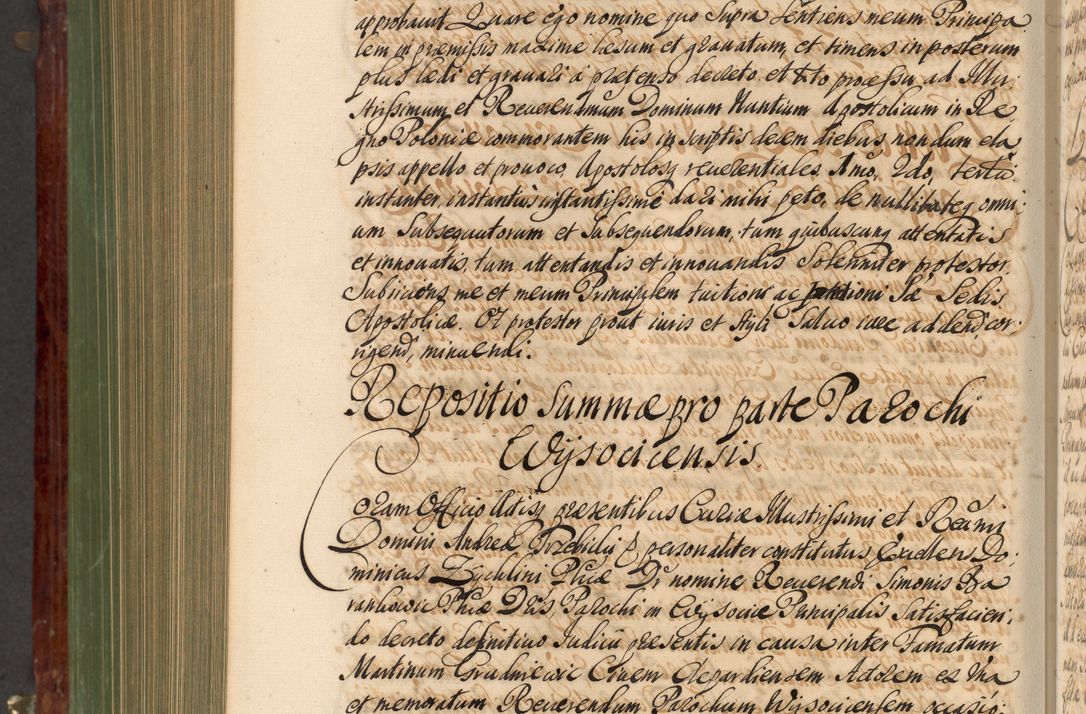 approbavit Quare ego nomine quo Supra Sentiens meum Principa
lem in præmissis maxime læsum et gravatum, et timens in posterum
plus lædi et gravari à prætenso decreto et toto processu ad Illu:
strissimum et Reverendmum Dominum Nuntium Apostolicum in Re
gno Poloniæ commorantem his in scriptis decem diebus nondum ela
psis appello et provoco, Apostolosq reverentiales. 1mo, 2do, tertio
instanter, instantius instantissime dari mihi peto, de nullitateq omni:
um Subsequutorum et Subsequendorum, tum quibuscunq attentatis
et innovatis, tum attentandis et innovandis Solenniter protestor.
Subiiciens me et meum Principalem tuitioni ac Sæ Sedis
Apostolicæ. Et protestor prout iuris et Styli Salvo iure addend, cor:
rigend, minuendi.
Repositio Summæ pro parte Parochi
Wysocicensis.
Coram Officio Actisq præsentibus Curiæ Illustrissimi et Reumi
Domini Andreæ personaliter constitutus Excellens Do:
minicus Zychlini Phiæ Dr nomine Reverendi Simonis Ba
rankowic Phiæ Dris Parochi in Wysocice Principalis Satisfacien:
do decreto definitivo Iudicii præsentis in causa inter Famatum
Martinum Grudniewic Civem Leopardiensem Actorem ex Una
et memoratum Reverendum Parochum Wysocicensem occasio: